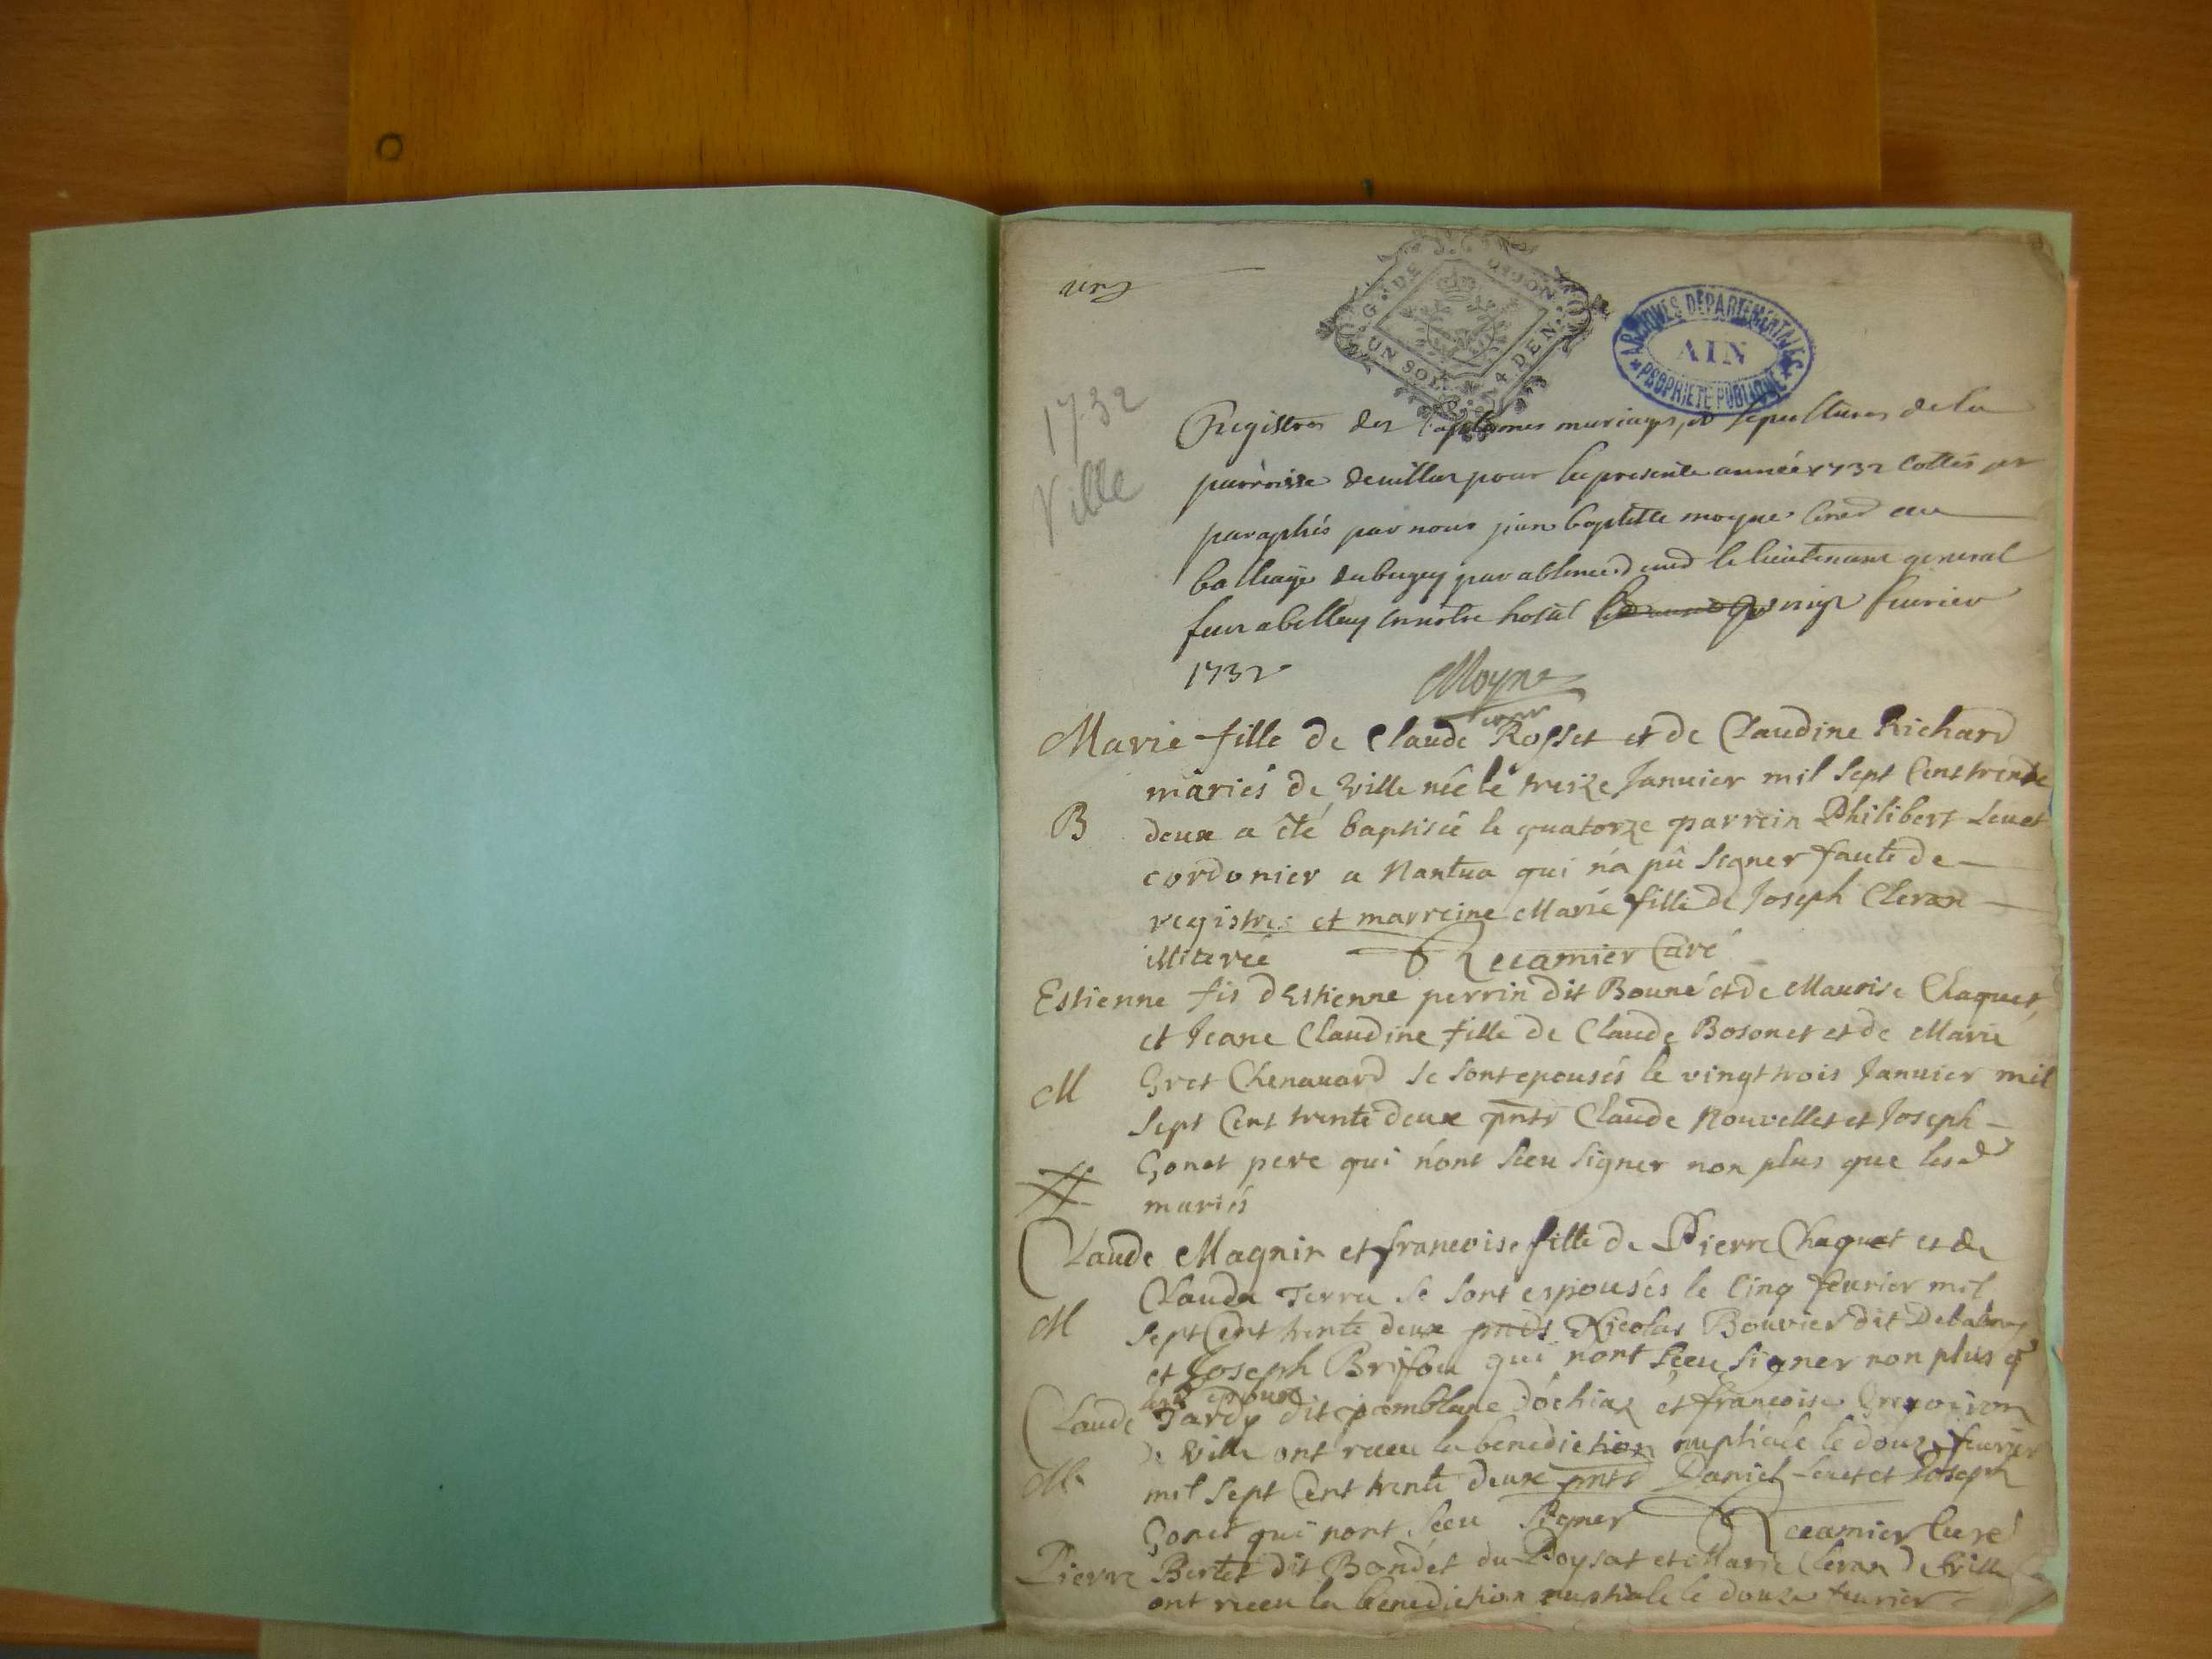 un
G. DE DIJON
UN SOL 4 DEN.
ARCHIVES DEPARTEMENTALES
AIN
PROPRIETE PUBLIQUE
1732
Ville
Registres des baptemes mariages, et sepultures de la
parroisse de pour la presente année 1732 cottés et
paraphés par nous jean baptiste moyne
balliage du bugey par absence le lieutenant general
a belley en notre hotel fevrier
1732
Moyne
Marie fille de Claude Rosset et de Claudine Richard
mariés de Ville née le treize Januier mil sept Cent trente
B
deux a été baptisée le quatorze parrein Philibert Leuet
cordonier a Nantua qui n'a pû signer faute de
registres et marreine Marie fille de Joseph Cleran
illiterée Recamier Curé
Estienne fis d'Estienne perrin dit Bouné et de Maurise Chaquet
et Jeane Claudine fille de Claude Bosonet et de Marie
M
Gret Chenauard se sont epousés le vingt trois Januier mil
sept Cent trente deux pnts Claude Nouvellet et Joseph
Gonet pere qui n'ont sceu signer non plus que lesd
mariés
Claude Magnin et francoise fille de Pierre Chaquet et de
Clauda Terra se sont espousés le cinq feurier mil
M
sept Cent trente deux pnts Nicolas Bouvier dit
et Joseph Brifou qui n'ont sceu signer non plus q
lesd epoux
Claude Tardy dit d'ochiaz et francoise
de Ville ont receu la benediction nuptiale le douze feurier
M
mil sept Cent trente deux pnts Daniel Leuet et Joseph
Gonet qui n'ont sceu signer Recamier Curé
Pierre Bertet dit Bondet du Poysat et Marie Cleran de Ville
ont receu la benediction nuptiale le douze feurier